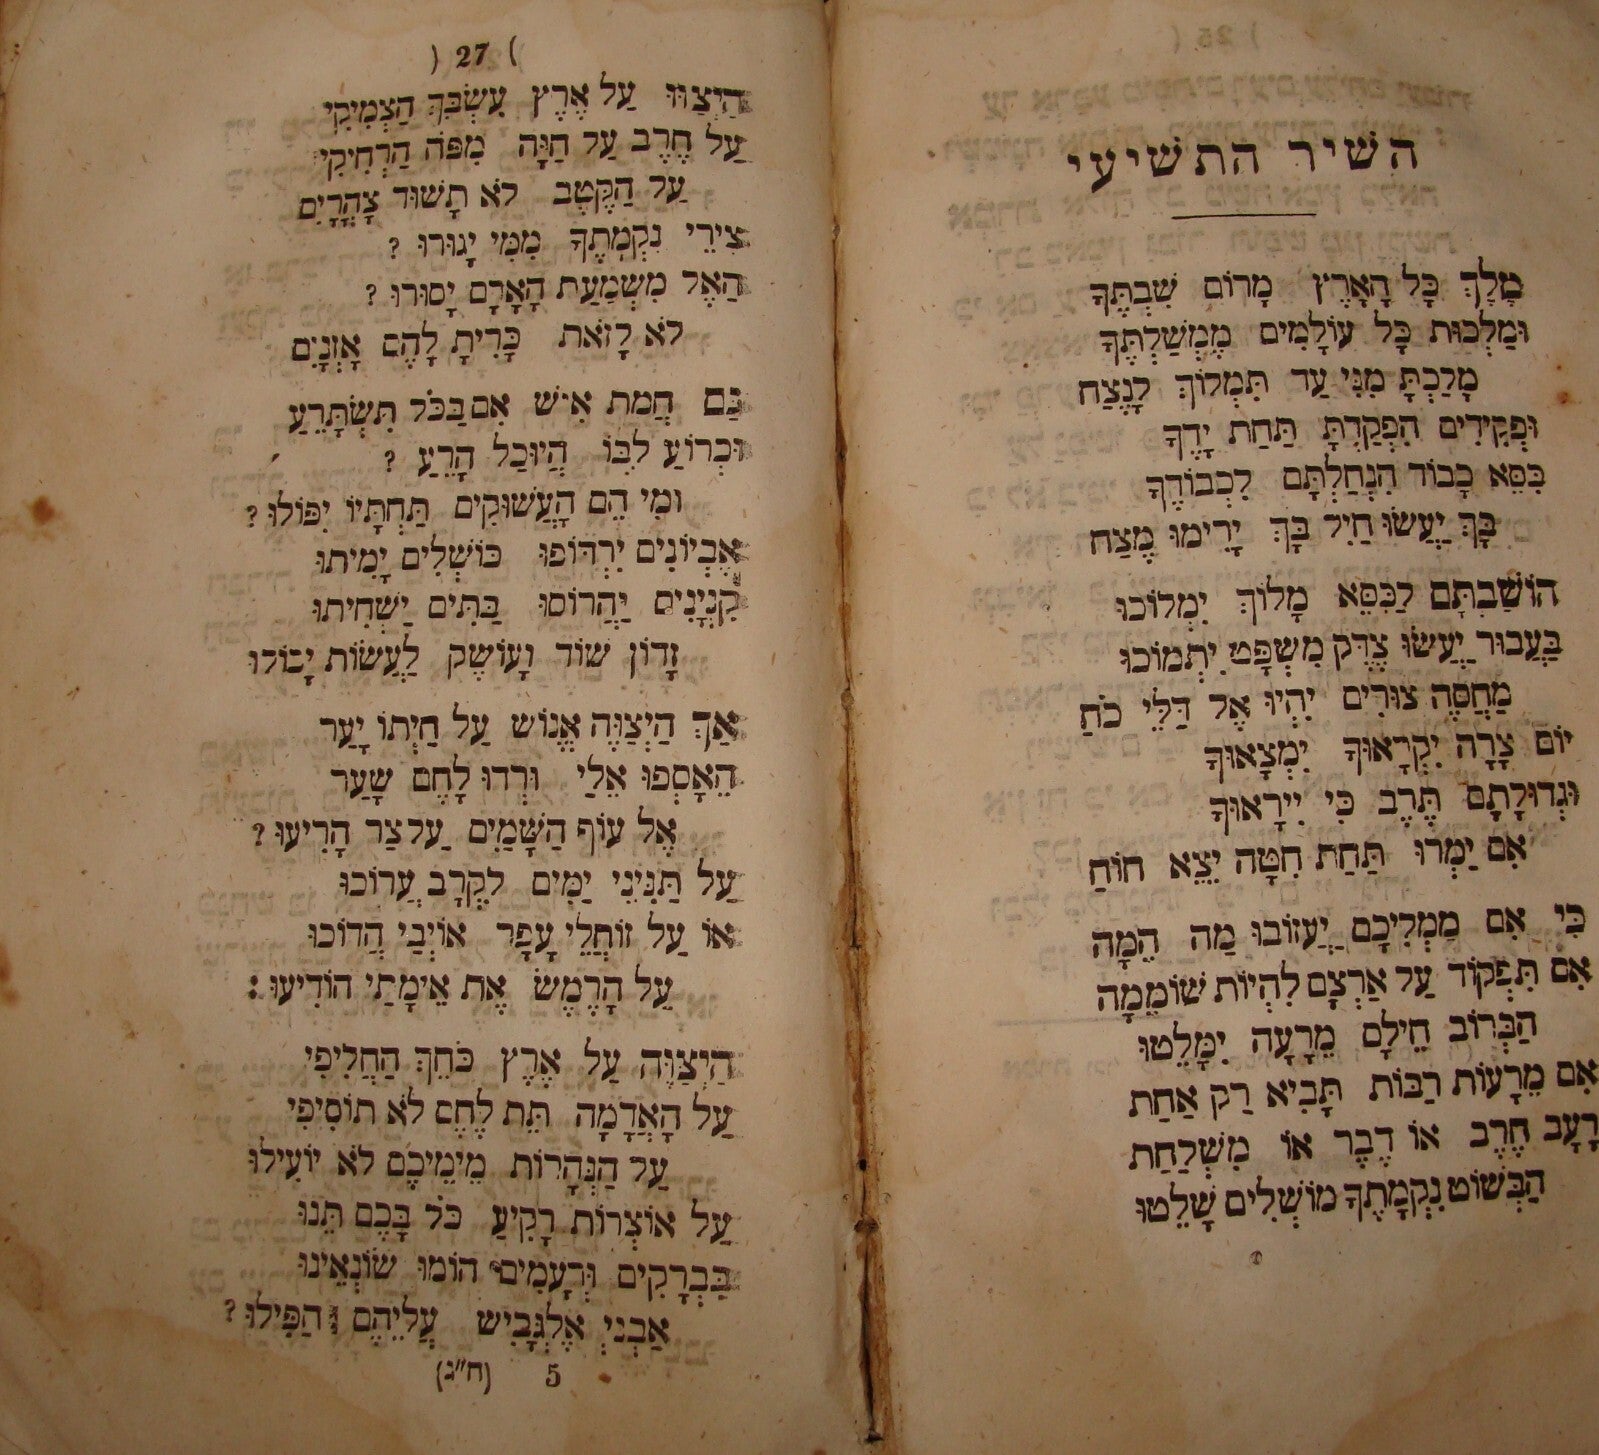 השיר התשיעי
מֶלֶךְ כָּל הָאָרֶץ מָרוֹם שִׁבְתֶּךָ
וּמַלְכוּת כָּל עוֹלָמִים מֶמְשַׁלְתֶּךָ
מָלַכְתָּ מִנִּי עַד תִּמְלוֹךְ לָנֶצַח
וּפְקִידִים הִפְקַדְתָּ תַּחַת יָדֶךָ
כִּסֵּא כָבוֹד הִנְחַלְתָּם לִכְבוֹדֶךָ
בָּךְ יַעֲשׂוּ חַיִל בָּךְ יָרִימוּ מֶצַח
הוֹשַׁבְתָּם לַכִּסֵּא מָלוֹךְ יִמְלוֹכוּ
בַּעֲבוּר יַעֲשׂוּ צֶדֶק מִשְׁפָּט יִתְמוֹכוּ
מַחֲסֶה צוּרִים יִהְיוּ אֶל דַּלֵּי כֹחַ
יוֹם צָרָה יִקְרָאוּךָ יִמְצָאוּךָ
וּגְדוּלָתָם תֶּרֶב כִּי יִירָאוּךָ
אִם יַמְרוּ תַּחַת חִטָּה יֵצֵא חוֹחַ
כִּי אִם מַמְלִיכָם יַעֲזוֹבוּ מַה הֵמָּה
אִם תִּפְקוֹד עַל אַרְצָם לִהְיוֹת שׁוֹמֵמָה
הַבְּרוֹב חֵילָם מֵרָעָה יִמָּלֵטוּ
אִם מֵרָעוֹת רַבּוֹת תָּבִיא רַק אַחַת
רָעָב חֶרֶב אוֹ דֶבֶר אוֹ מִשְׁלַחַת
הַבְּשׁוֹט נִקְמָתֶךָ מוֹשְׁלִים שָׁלֵטוּ
( 27 )
הַיְצַוּוּ עַל אֶרֶץ עִשְׂבֵּךְ הַצְמִיקִי
עַל חֶרֶב עַל חַיָּה מִפֹּה הַרְחִיקִי
עַל הַקֶּטֶב לֹא תָשׁוּד צָהֳרָיִם
צִירֵי נִקְמָתֶךָ מִמִּי יָגוּרוּ ?
הַאֶל מִשְׁמַעַת הָאָדָם יָסוּרוּ ?
לֹא לָזֹאת כָּרִיתָ לָהֶם אָזְנָיִם
גַּם חֲמַת אִישׁ אִם בַּכֹּל תִּשְׂתָּרֵעַ
וּכְרוֹעַ לִבּוֹ הֲיוּכַל הָרֵעַ ?
וּמִי הֵם הָעֲשׁוּקִים תַּחְתָּיו יִפּוֹלוּ ?
אֶבְיוֹנִים יִרְדּוֹפוּ כּוֹשְׁלִים יָמִיתוּ
קִנְיָנִים יַהֲרוֹסוּ בַּתִּים יַשְׁחִיתוּ
זָדוֹן שׁוֹד וָעוֹשֶׁק לַעֲשׂוֹת יָכוֹלוּ
אַךְ הַיְצַוֶּה אֱנוֹשׁ עַל חַיְתוֹ יָעַר
הֵאָסְפוּ אֵלַי וּרְדוּ לָחֶם שָׁעַר
אֶל עוֹף הַשָּׁמַיִם עַל צַר הָרִיעוּ ?
עַל תַּנִּינֵי יַמִּים לִקְרָב עֲרוֹכוּ
אוֹ עַל זוֹחֲלֵי עָפָר אוֹיְבַי הֲדוֹכוּ
עַל הָרֶמֶשׂ אֶת אֵימָתַי הוֹדִיעוּ :
הַיְצַוֶּה עַל אֶרֶץ כֹּחֵךְ הַחֲלִיפִי
עַל הָאֲדָמָה תֵּת לֶחֶם לֹא תוֹסִיפִי
עַל הַנְּהָרוֹת מֵימֵיכֶם לֹא יוֹעִילוּ
עַל אוֹצְרוֹת רָקִיעַ כֹּל בָּכֶם תֵּנוּ
בַּבְּרָקִים וּרְעָמִים הוֹמוּ שׂוֹנְאֵינוּ
אַבְנֵי אֶלְגָּבִישׁ עֲלֵיהֶם הַפִּילוּ ?
5 (ח״ג)